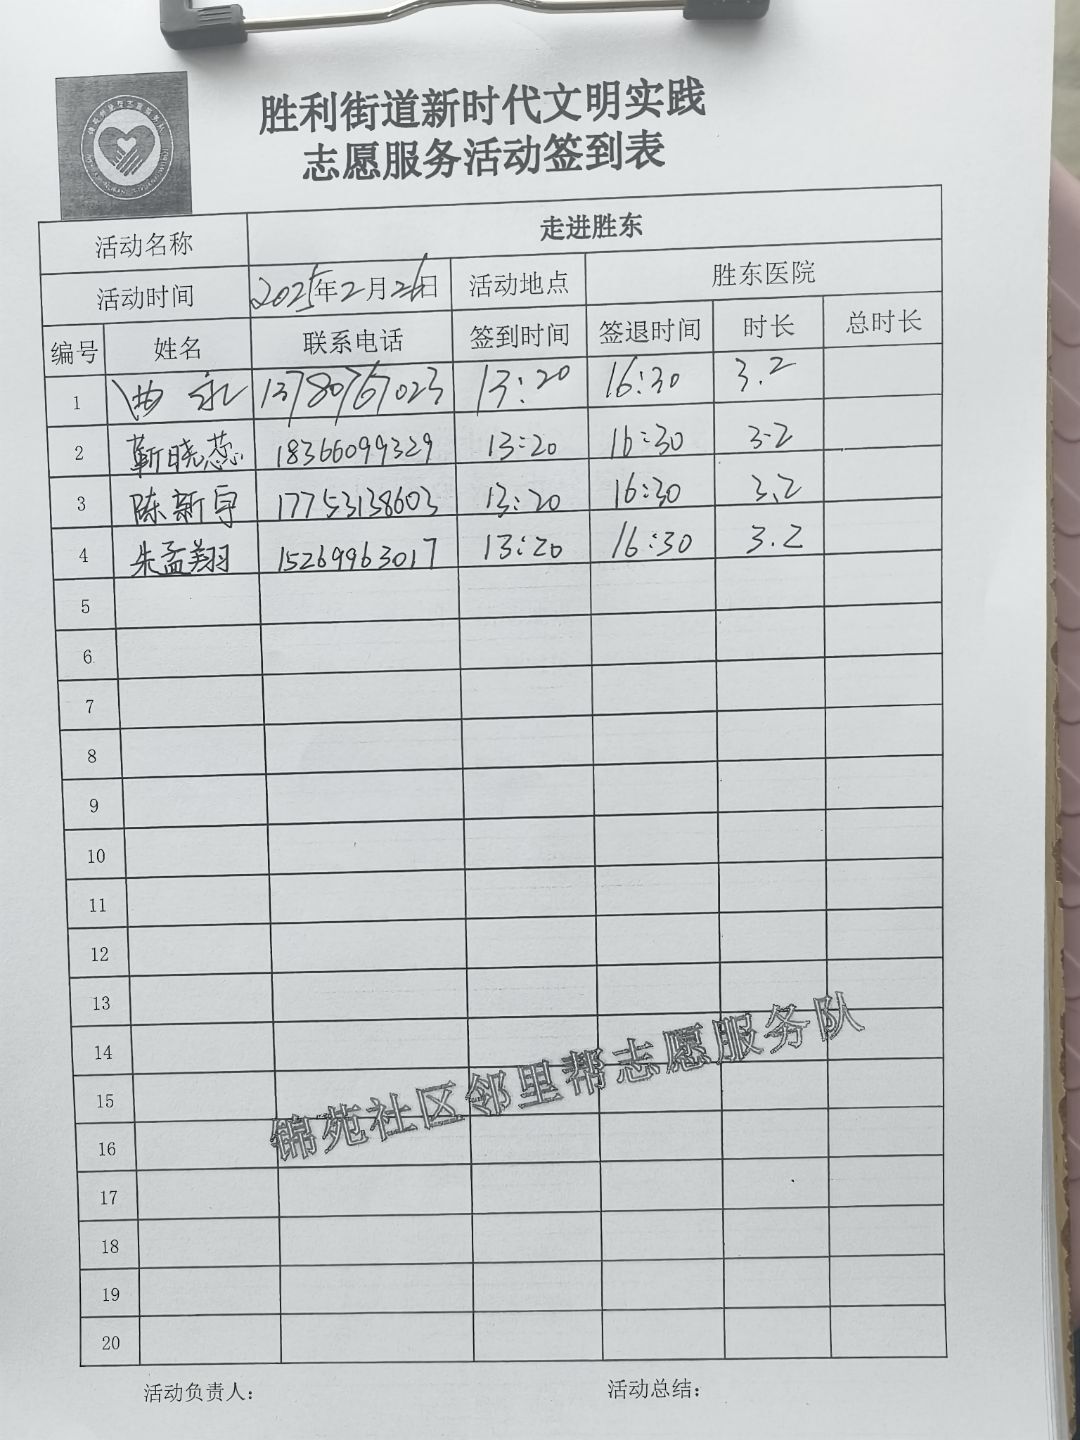 胜利街道新时代文明实践
志愿服务活动签到表
活动名称 走进胜东
活动时间 2025年2月26日 活动地点 胜东医院
编号 姓名 联系电话 签到时间 签退时间 时长 总时长
1 永 13780767023 13:20 16:30 3.2
2 靳晓蕊 18366099329 13:20 16:30 3.2
3 陈新宇 17753138603 13:20 16:30 3.2
4 朱孟翔 15269963017 13:20 16:30 3.2
5
6
7
8
9
10
11
12
13
14
15
16
17
18
19
20
锦苑社区邻里帮志愿服务队
活动负责人： 活动总结：